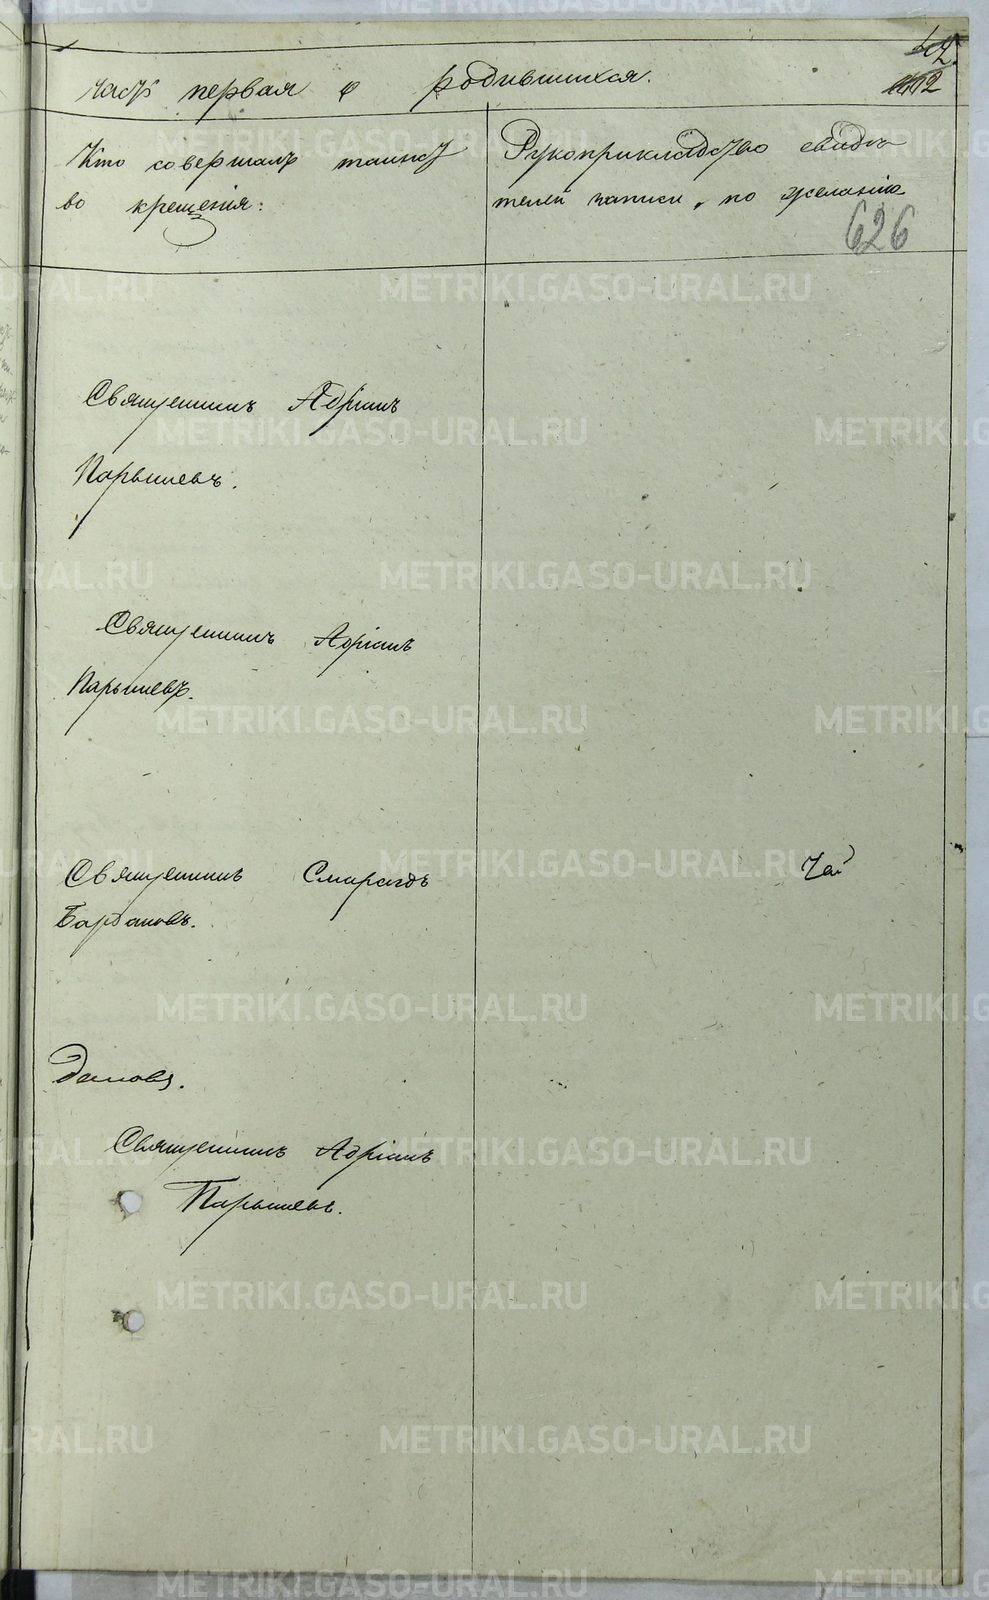 часть первая о родившихся.
Кто совершалъ таинст
во крещенія:
Рукоприкладство свидѣ
телей записи, по желанію
626
Священникъ Адріанъ
Парышевъ.
Священникъ Адріанъ
Парышевъ.
Священникъ Смарагдъ
Бардановъ.
Священникъ Адріанъ
Парышевъ.
METRIKI.GASO-URAL.RU